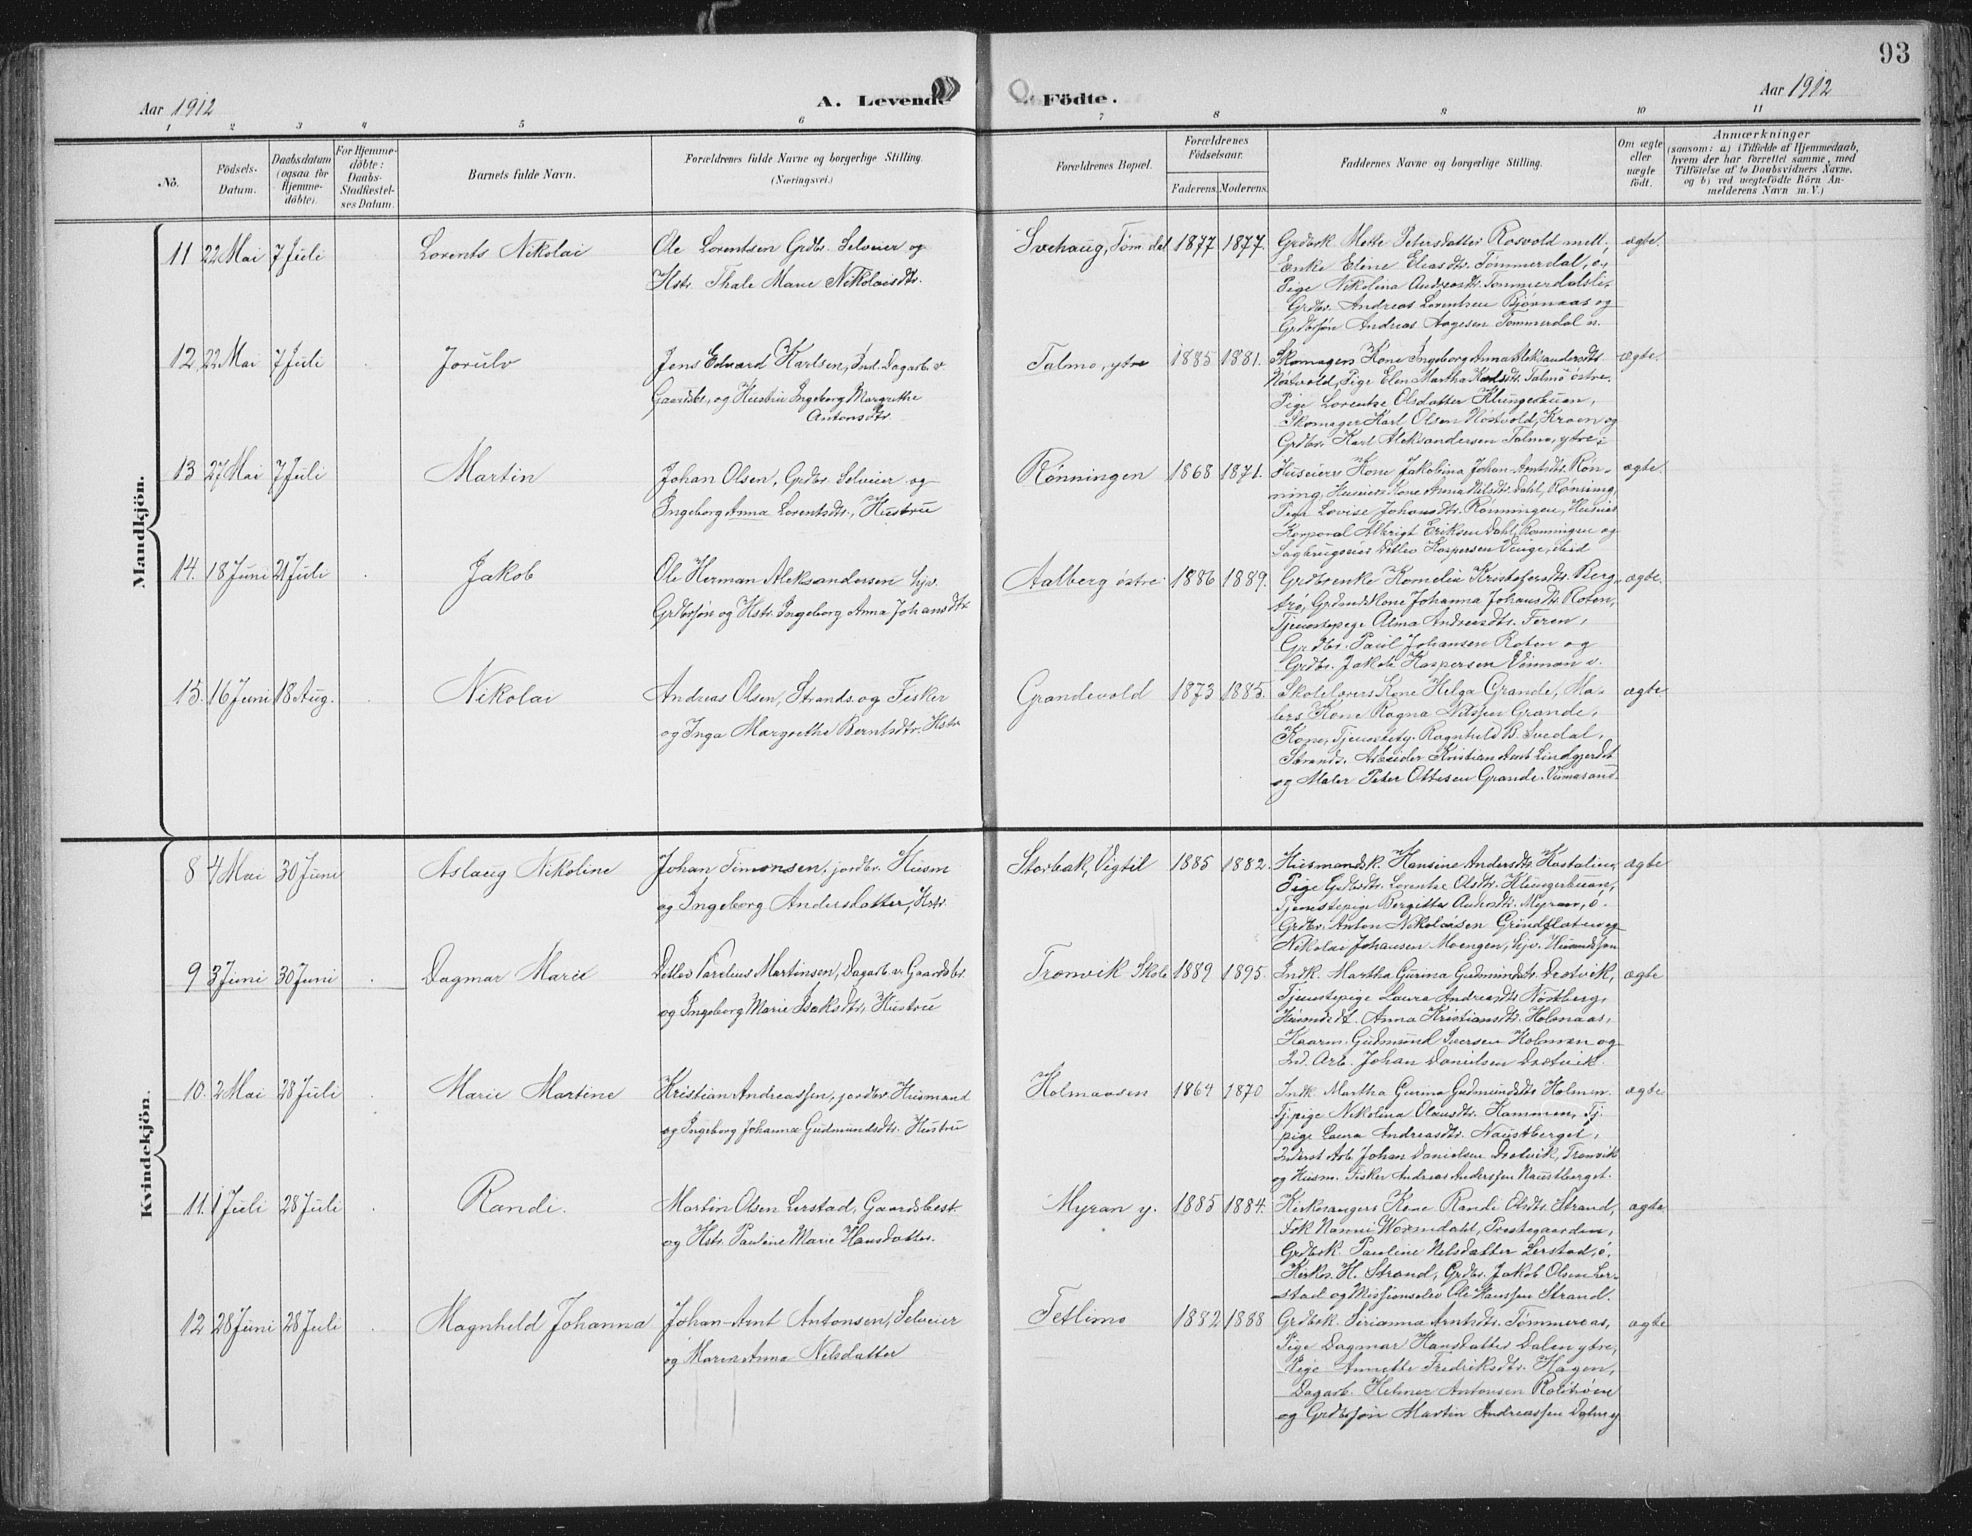 93
Aar 1912
A. Levende Födte.
Aar 1912
1 2 3 4 5 6 7 8 9 10 11
No.
Födsels-
Datum.
Daabsdatum
(ogsaa for
Hjemme-
döbte).
For Hjemme-
döbte:
Daabs-
Stadfæstel-
ses Datum.
Barnets fulde Navn.
Forældrenes fulde Navne og borgerlige Stilling.
(Næringsvei.)
Forældrenes Bopæl.
Forældrenes
Födselsaar.
Faderens. Moderens.
Faddernes Navne og borgerlige Stilling.
Om ægte
eller
uægte
födt.
Anmærkninger
(saasom: a) i Tilfælde af Hjemmedaab,
hvem der har forrettet samme, med
Tilföielse af to Daabsvidners Navne,
og b) ved uægtefödte Börn An-
melderens Navn m. V.)
Mandkjön.
11 22 Mai 7 Juli Lorents Nikolai
Ole Lorentsen Grdbr. Selveier og
Hstr. Thale Marie Nikolaisdtr.
Svehaug, Töm.dal 1877 1877.
Grdbrk Mette Petersdatter Rosvold mell.
Enke Eline Eliasdtr. Tömmerdal, ö,
Pige Nikolina Andreasdtr. Tömmerdalsli,
Grdbr. Andreas Lorentsen Björnaas og
Grdbrsön Andreas Aagesen Tömmerdal n.
ægte.
12 22 Mai 7 Juli Jorulv
Jens Edvard Karlsen, Ind. Dagarb. v.
Gaardsbr, og Hustru Ingeborg Margrethe
Antonsdtr.
Talmo, ytre 1885 1881.
Skomagers Kone Ingeborg Anna Aleksandersdtr.
Nöstvold, Pige Elen Martha Karlsdtr. Talmo östre.
Pige Lorentse Olsdatter Klungerbuan,
Skomager Karl Olsen Nöstvold, Kraen og
Grdbr. Karl Aleksandersen Talmo, ytre.
ægte.
13 27 Mai 7 Juli Martin
Johan Olsen, Grdbr. Selveier og
Ingeborg Anna Lorentsdtr., Hustru
Rönningen 1868 1871.
Huseiers Kone Jakobina Johan-Arntsdtr. Rön-
ning, Huseiers Kone Anna Nilsdtr. Dahl, Rönning,
Pige Lovise Johansdtr. Rönningen, Huseier
Korporal Albrigt Eriksen Dahl, Rönningen og
Sagbrugseier Detlev Kaspersen Vinge, ibid
ægte.
14. 18 Juni 21 Juli Jakob
Ole Herman Aleksandersen hjv.
Grdbrsön og Hstr. Ingeborg Anna Johansdtr
Aalberg östre 1886 1889.
Grdbrenke Kornelia Kristofersdtr. Berg-
trö, Grdmds Kone Johanna Johansdtr. Roten,
Tjenestepige Alma Andreasdtr. Feren,
Grdbr. Paul Johansen Roten og
Grdbr. Jakob Kaspersen Vinnan v.
ægte.
15. 16 Juni 18 Aug. Nikolai
Andreas Olsen, Strands. og Fisker
og Inga Margrethe Berntsdtr. Hstr
Grandevold 1873 1885.
Skolelærers Kone Helga Grande, Ma-
lers Kone Ragna Nilssen Grande,
Kone, Tjenestepg. Ragnhild B. Svedal,
Strands. Kristian Arnt
og Maler Peter Ottesen Grande.
ægte
Kvindekjön.
8 4 Mai 30 Juni Aslaug Nikoline
Johan Simonsen, jordbr. Husm
og Ingeborg Andersdatter, Hstr.
Storbak, Vigtil 1885 1882.
Husmandsk. Hansine Andersdtr. Hastalien,
Pige Grdbrdtr. Lorentse Olsdtr. Klungerbuan,
Tjenestepige Bergitta Andersdtr. Myran, ö.
Grdbr. Anton Nikolaisen Gröndflaten og
Nikolai Johansen Moengen, hjv. Husmdssön
ægte
9 3 Juni 30 Juni Dagmar Marie
Ditlev Parelius Martinsen, Dagarb. v. Gaardsbr.
og Ingeborg Marie Isaksdtr., Hustru
Tronvik Skole 1889 1895.
Indk. Martha Gurina Gudmundsdtr. Drotvik,
Tjenestepige Laura Andreasdtr. Nöstberg,
Husmdsdt. Anna Kristiansdtr. Holmaas,
Kaarm. Gudmund Iversen Holman og
Ind. Arb. Johan Danielsen Drotvik.
ægte
10. 2 Mai 28 Juli Marie Martine
Kristian Andreassen, jordbr. Husmand
og Ingeborg Johanna Gudmundsdtr. Hustru
Holmaasen 1864 1870
Indk. Martha Gurina Gudmundsdtr. Holmen.
Tj.pige Nikolina Olausdtr. Kammen, Tj.
pige Laura Andreasdtr. Naustberget,
Inderst Arb. Johan Danielsen Drotvik, Tronvik
og Husm. Fisker Andreas Anderssen Naustberget.
ægte
11. 1 Juli 28 Juli Randi.
Martin Olsen Lerstad, Gaardsbest.
og Hstr. Pauline Marie Hansdatter.
Myran y. 1885 1884.
Kirkesangers Kone Randi Olsdtr. Strand,
Frk Nanni Wormdahl, Prestegaarden,
Grdbrk. Pauline Nilsdatter Lerstad, ö.
Kirkes. H. Strand, Grdbr. Jakob Olsen Ler-
stad og Missionselev Ole Hanssen Strand.
ægte
12 28 Juni 28 Juli Magnhild Johanna
Johan-Arnt Antonsen, Selveier
og Maren Anna Nilsdatter
Tetlimo 1882 1888
Grdbrk. Sirianna Arntsdtr. Tömmeraas,
Pige Dagmar Hansdatter Dalen ytre,
Pige Annette Fredriksdtr. Hagen,
Dagarb. Helmer Antonsen Rolihöin
og Grdbrsön Martin Andreassen Dalen y
ægte